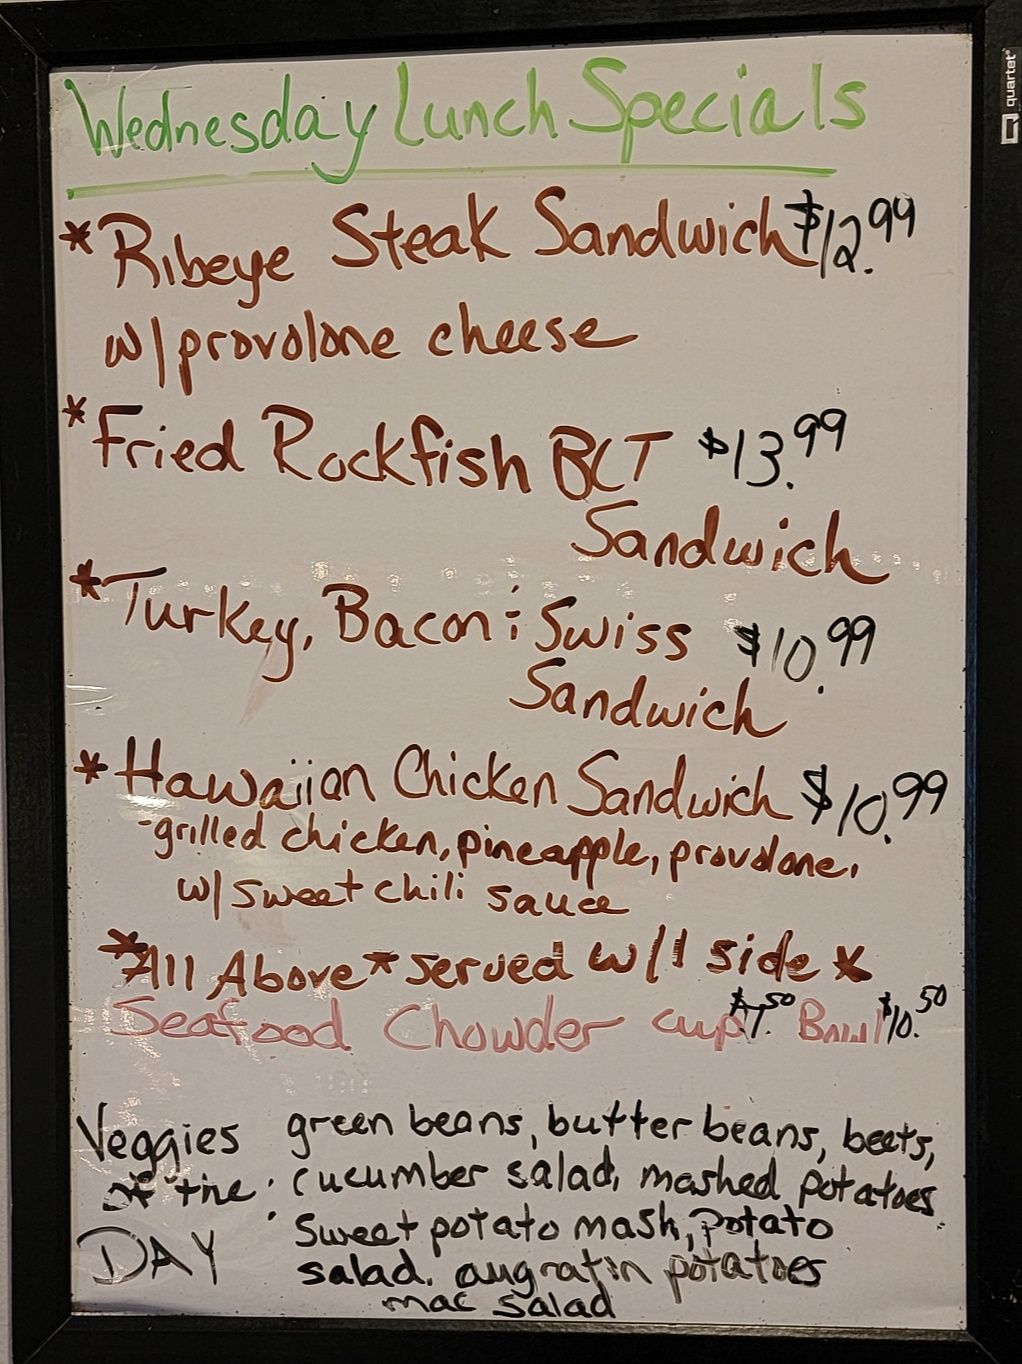 Wednesday Lunch Specials
quartet
* Ribeye Steak Sandwich $12.99
w/ provolone cheese
* Fried Rockfish BLT $13.99
Sandwich
* Turkey, Bacon & Swiss $10.99
Sandwich
* Hawaiian Chicken Sandwich $10.99
-grilled chicken, pineapple, provolone,
w/ sweet chili sauce
*All Above * served w/1 side *
Seafood Chowder cup $7.50 Bowl $10.50
Veggies green beans, butter beans, beets,
of the : cucumber salad, mashed potatoes
DAY sweet potato mash, potato
salad, augratin potatoes
mac salad